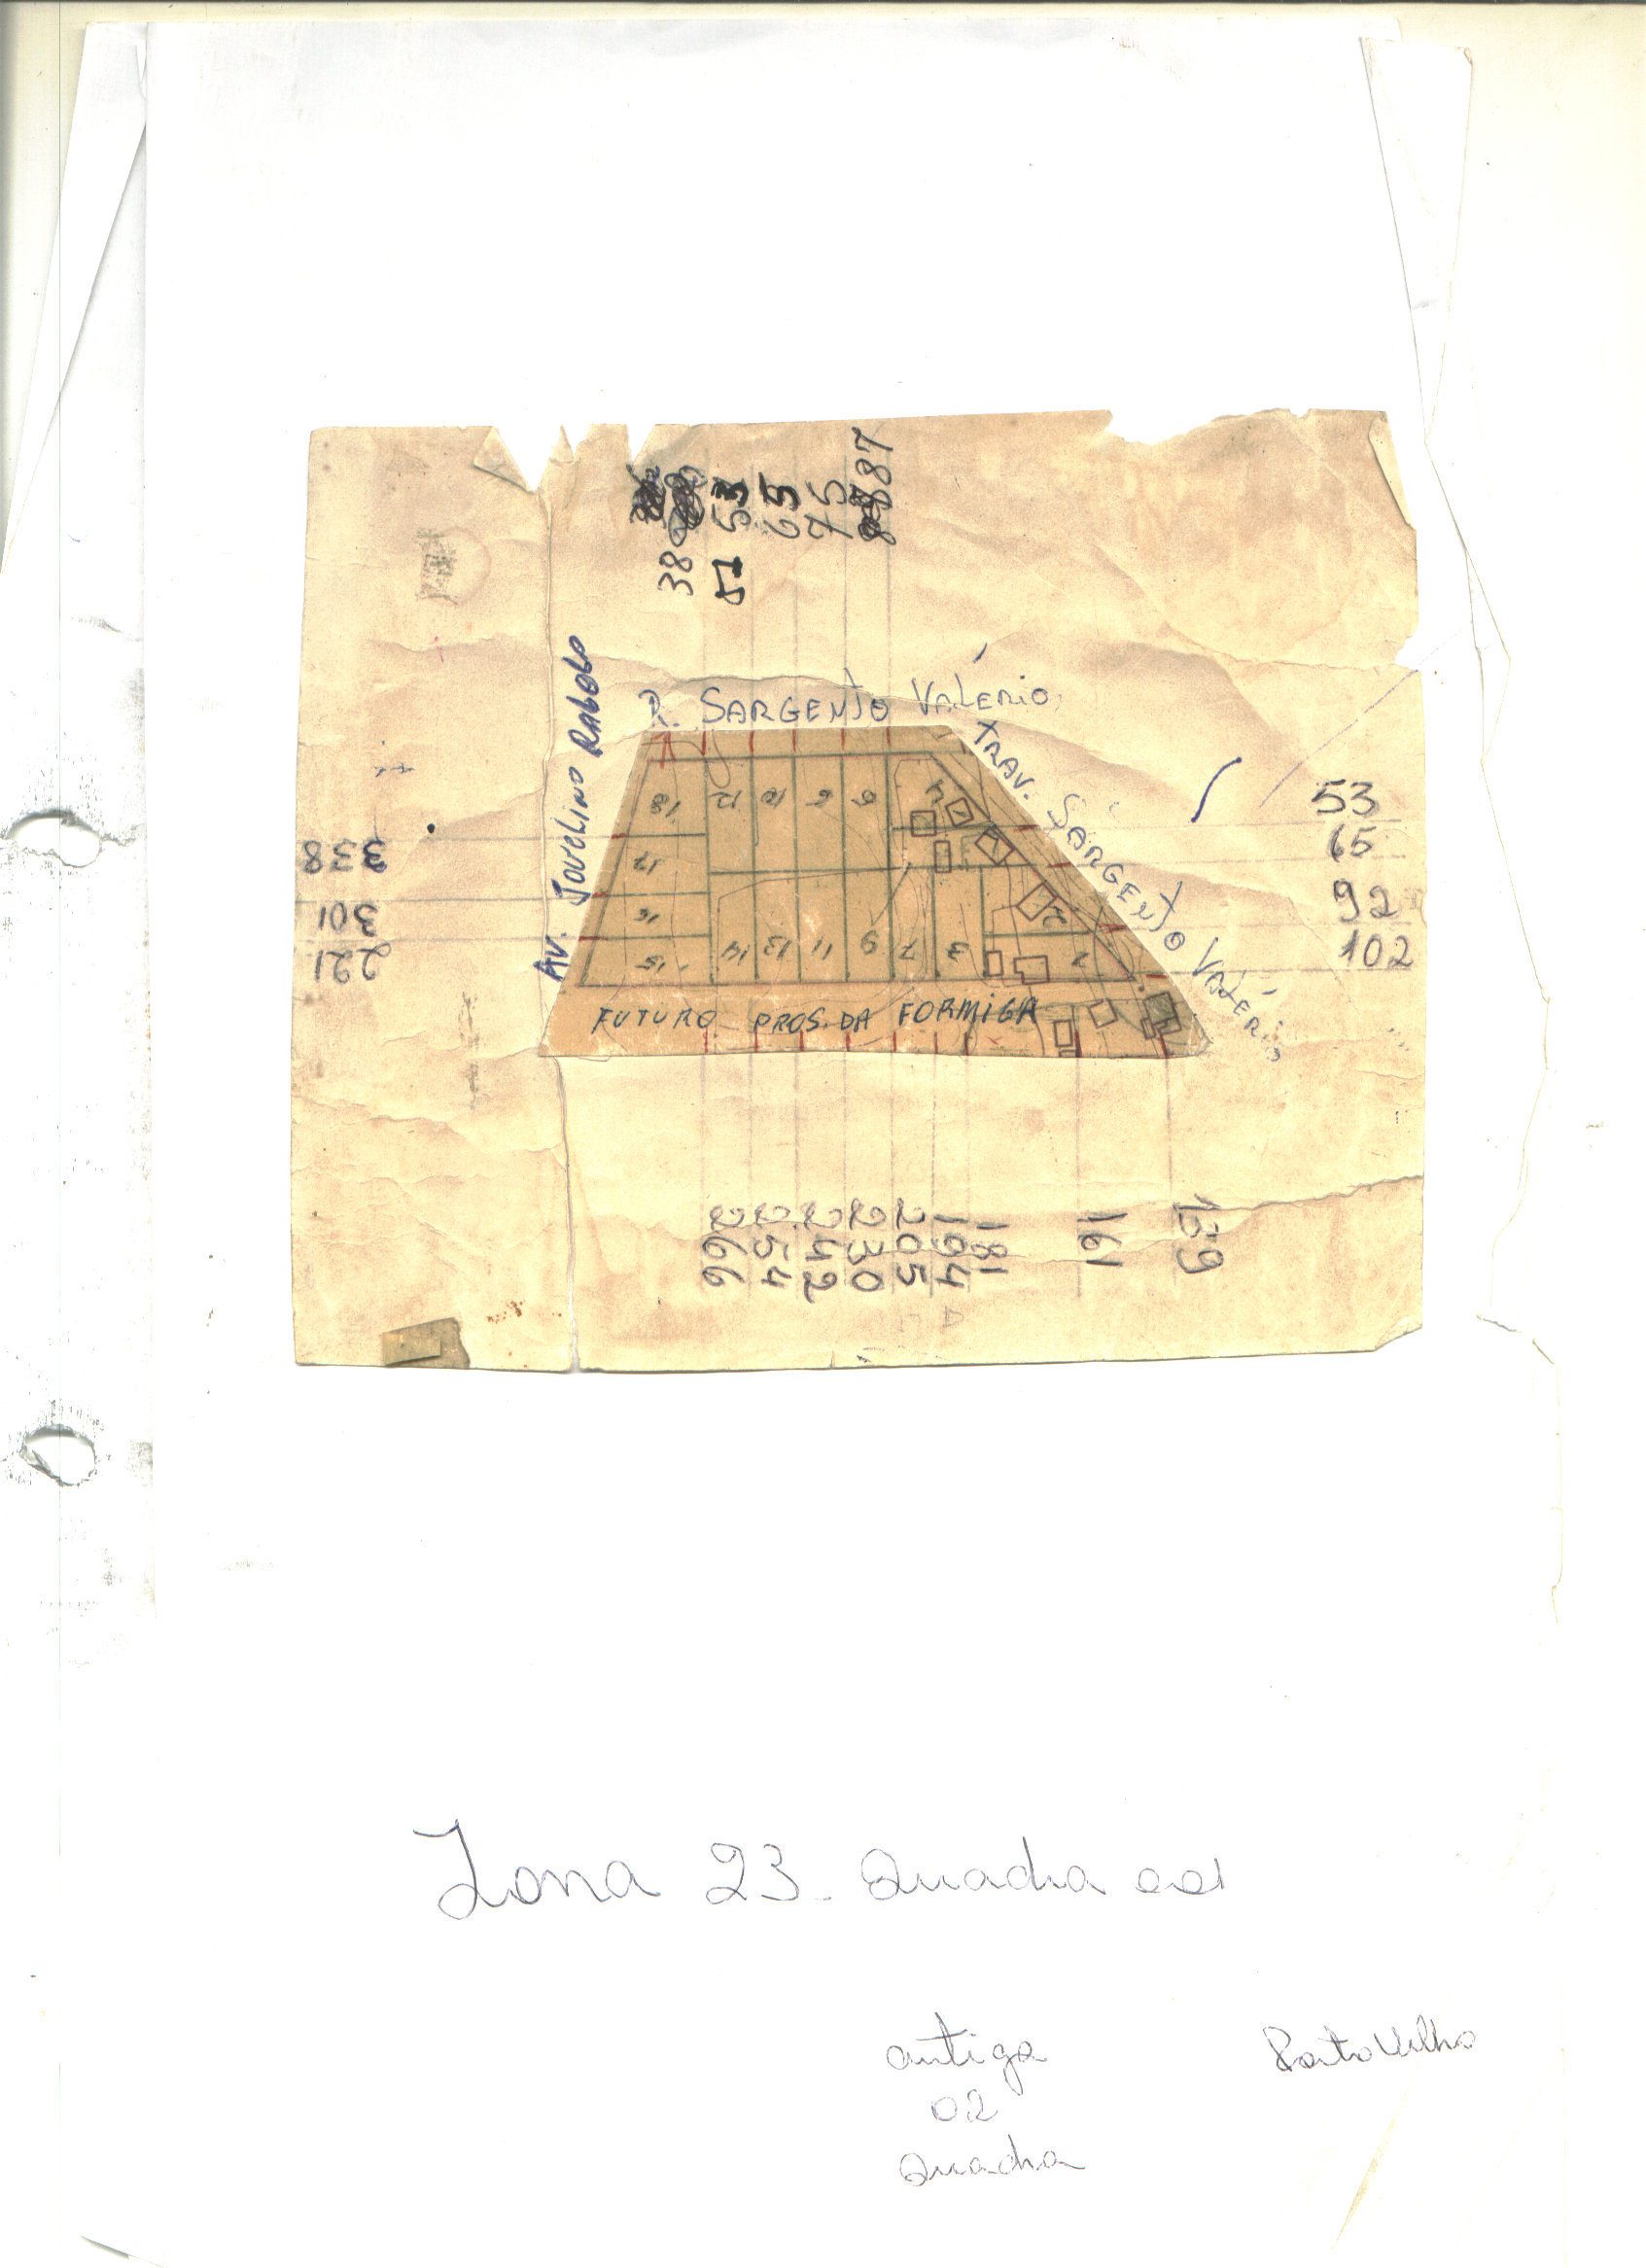 38
51 53
65
75
887
R. SARGENTO VALÉRIO
TRAV. SARGENTO VALÉRIO
AV. JOVELINO RABELO
53
65
92
102
338
301
221
18 12 10 8 6 4
17
16 2
15 14 13 11 9 7 3 1
FUTURO PROS. DA FORMIGA
266
254
242
230
205
194
181
161
139
Zona 23 - Quadra 001
antiga
02
Quadra
Porto Velho